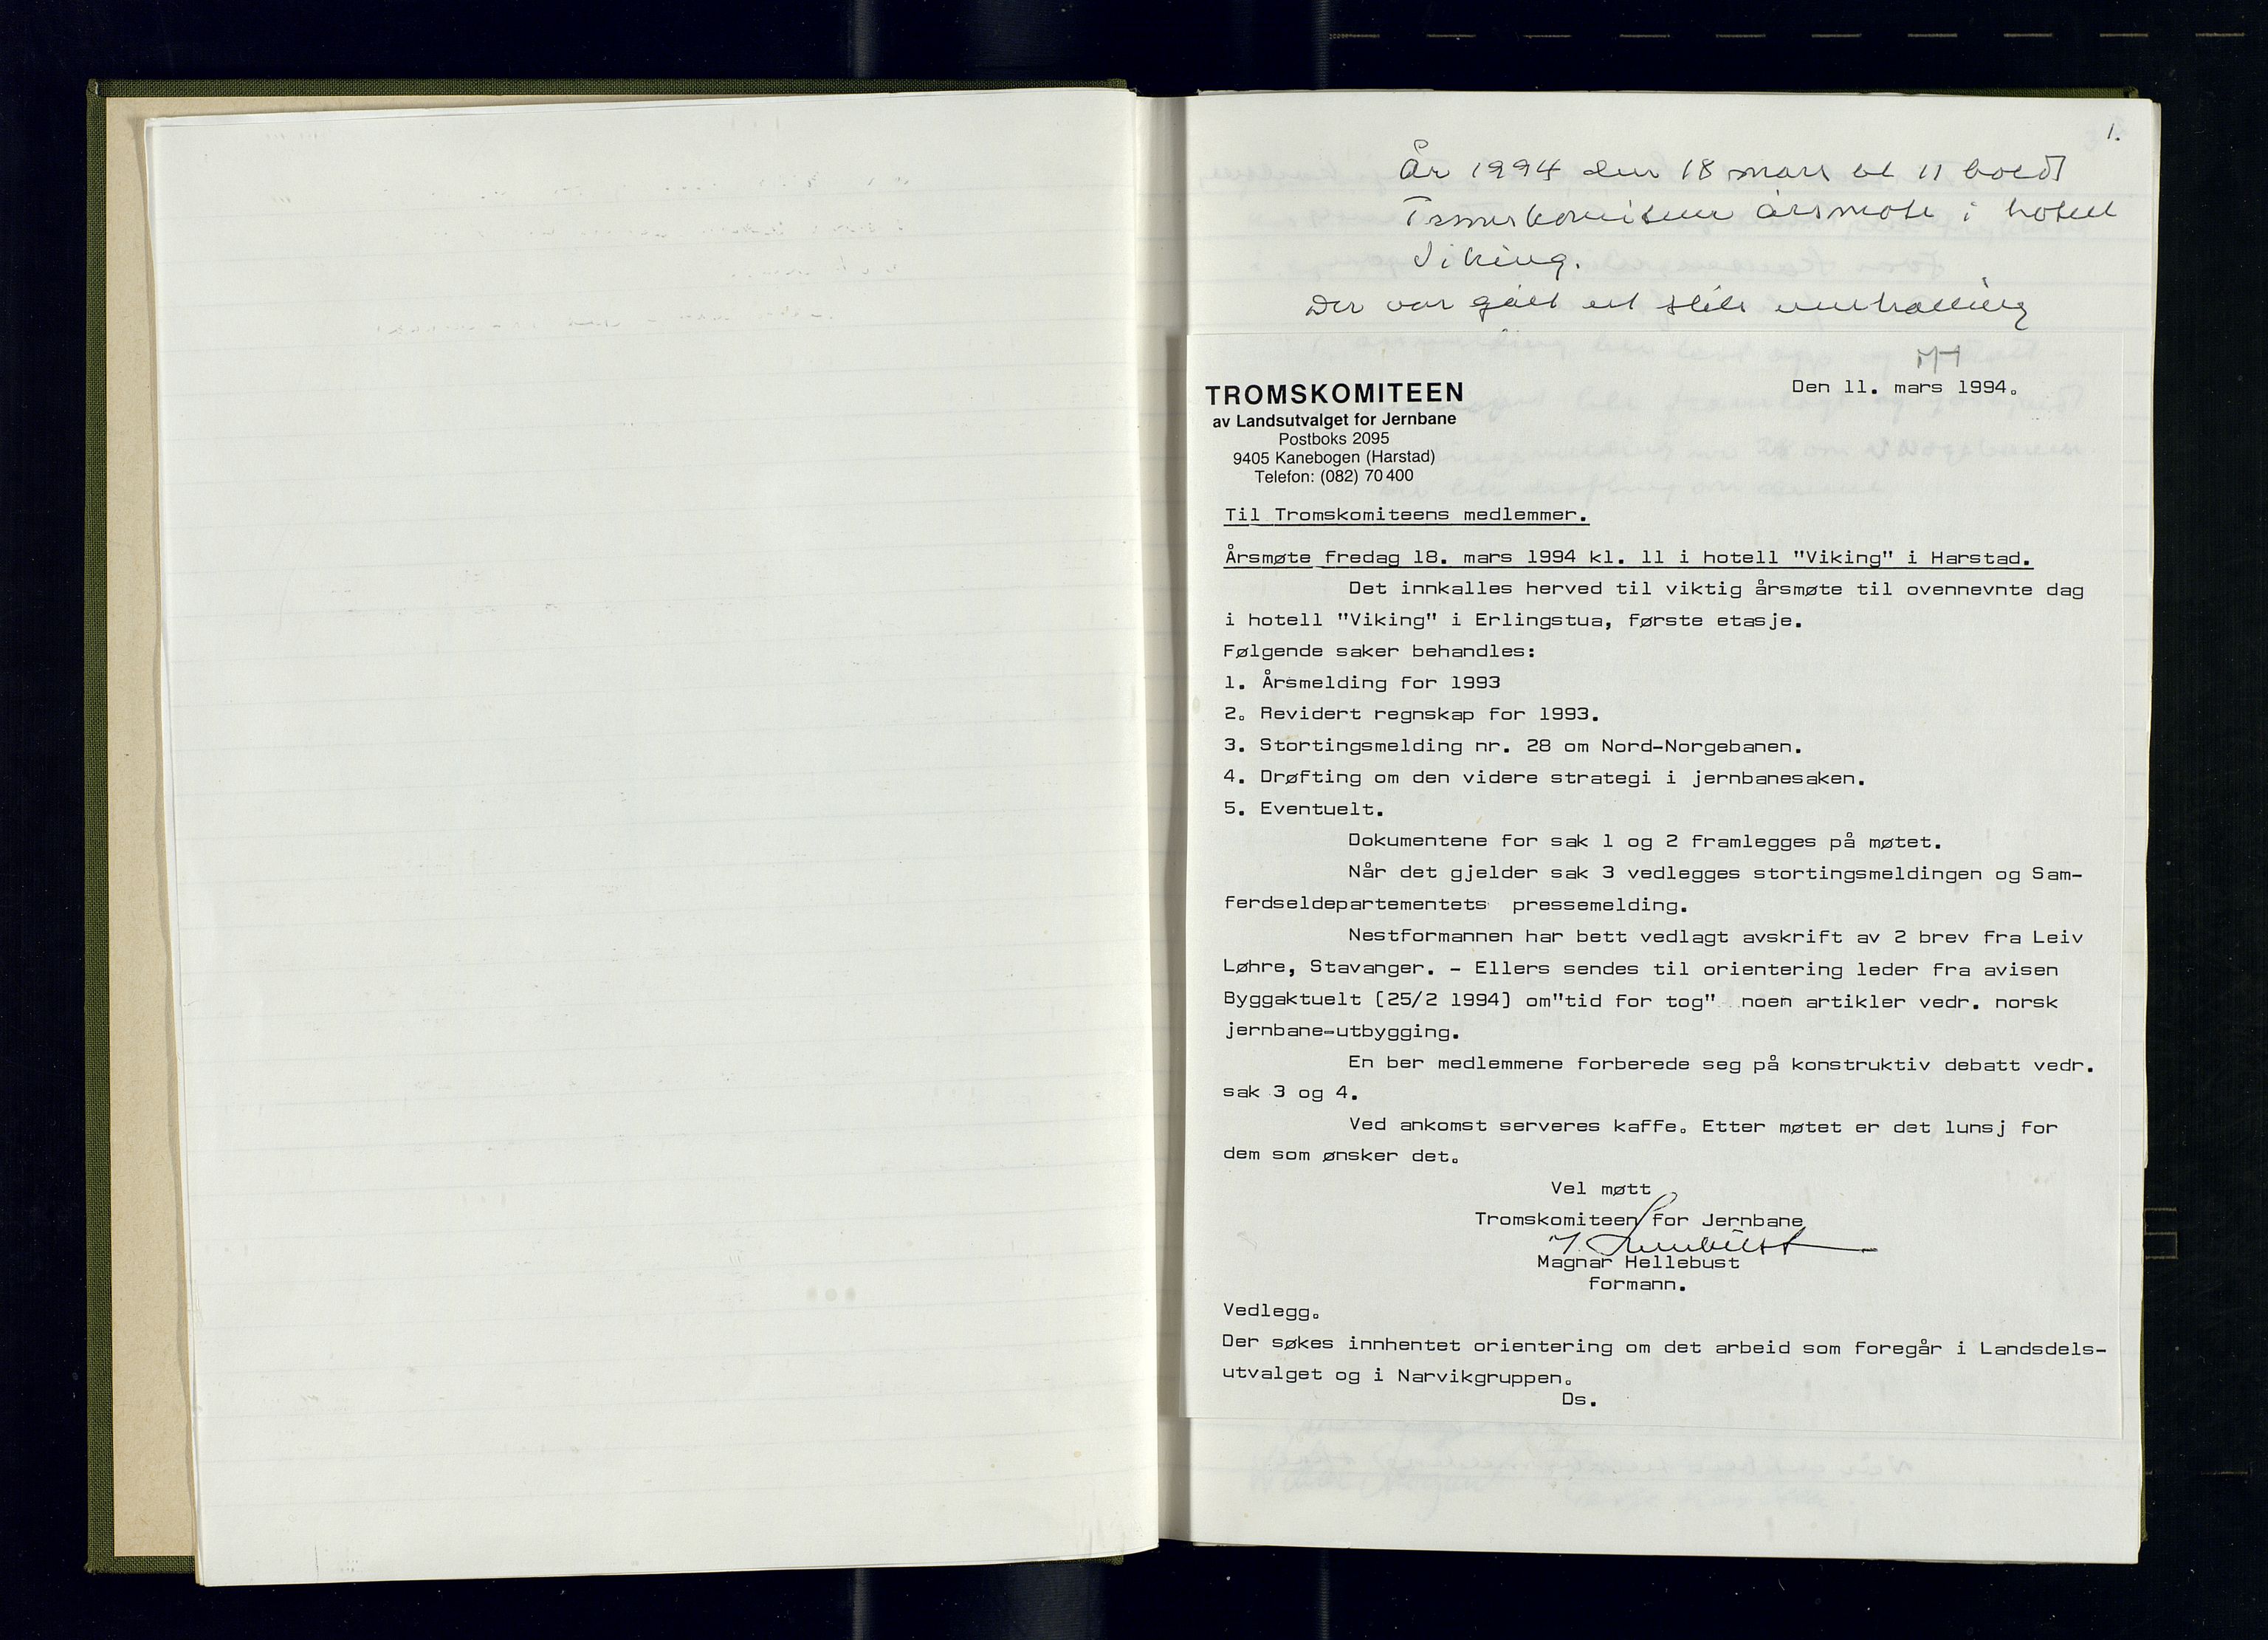 1.
År 1994 den 18 mars kl 11 holdt
Tromskomiteen årsmøte i hotell
Viking.
Der var gått ut slik innkalling
MH
TROMSKOMITEEN
av Landsutvalget for Jernbane
Postboks 2095
9405 Kanebogen (Harstad)
Telefon: (082) 70 400
Den 11. mars 1994.
Til Tromskomiteens medlemmer.
Årsmøte fredag 18. mars 1994 kl. 11 i hotell "Viking" i Harstad.
Det innkalles herved til viktig årsmøte til ovennevnte dag
i hotell "Viking" i Erlingstua, første etasje.
Følgende saker behandles:
1. Årsmelding for 1993
2. Revidert regnskap for 1993.
3. Stortingsmelding nr. 28 om Nord-Norgebanen.
4. Drøfting om den videre strategi i jernbanesaken.
5. Eventuelt.
Dokumentene for sak 1 og 2 framlegges på møtet.
Når det gjelder sak 3 vedlegges stortingsmeldingen og Sam-
ferdseldepartementets pressemelding.
Nestformannen har bett vedlagt avskrift av 2 brev fra Leiv
Løhre, Stavanger. - Ellers sendes til orientering leder fra avisen
Byggaktuelt (25/2 1994) om"tid for tog" noen artikler vedr. norsk
jernbane-utbygging.
En ber medlemmene forberede seg på konstruktiv debatt vedr.
sak 3 og 4.
Ved ankomst serveres kaffe. Etter møtet er det lunsj for
dem som ønsker det.
Vel møtt
Tromskomiteen for Jernbane
Magnar Hellebust
formann.
Vedlegg.
Der søkes innhentet orientering om det arbeid som foregår i Landsdels-
utvalget og i Narvikgruppen.
Ds.